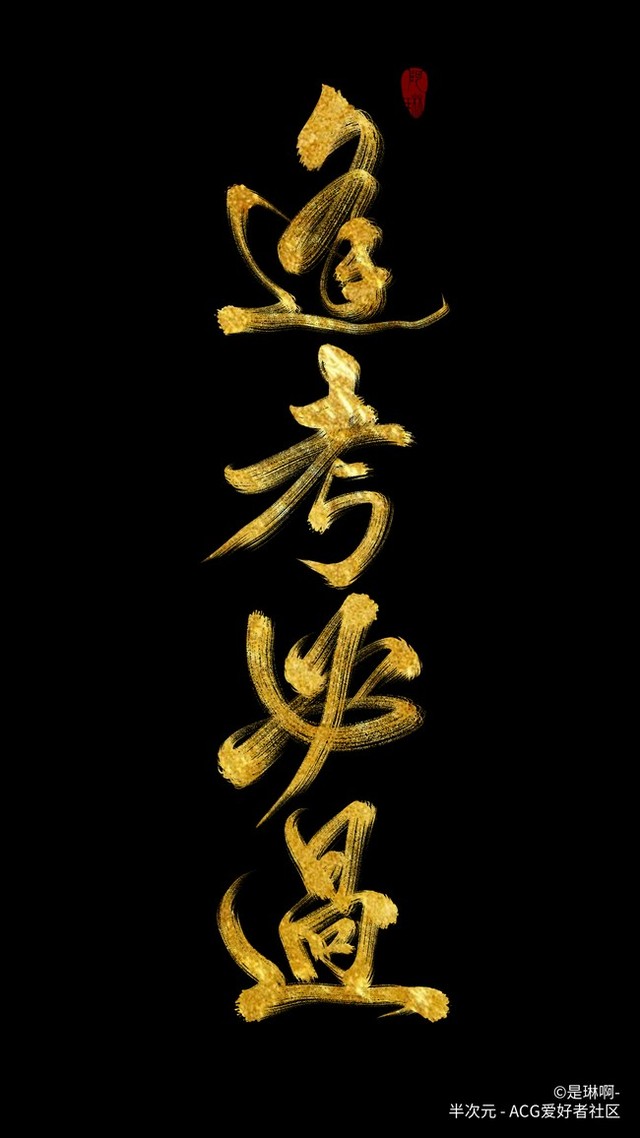 逢
考
必
過
©是琳啊-
半次元 - ACG爱好者社区